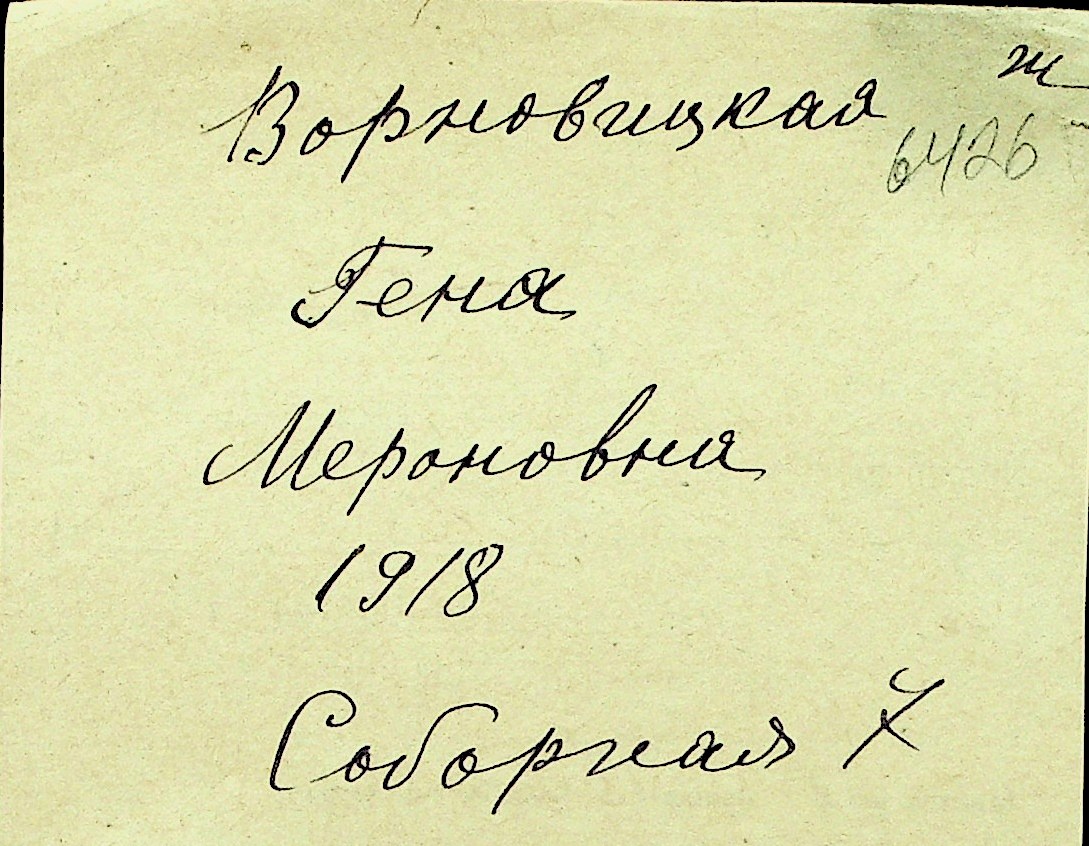 Ворновицкая ж
6426
Гена
Мероновна
1918
Соборная 7